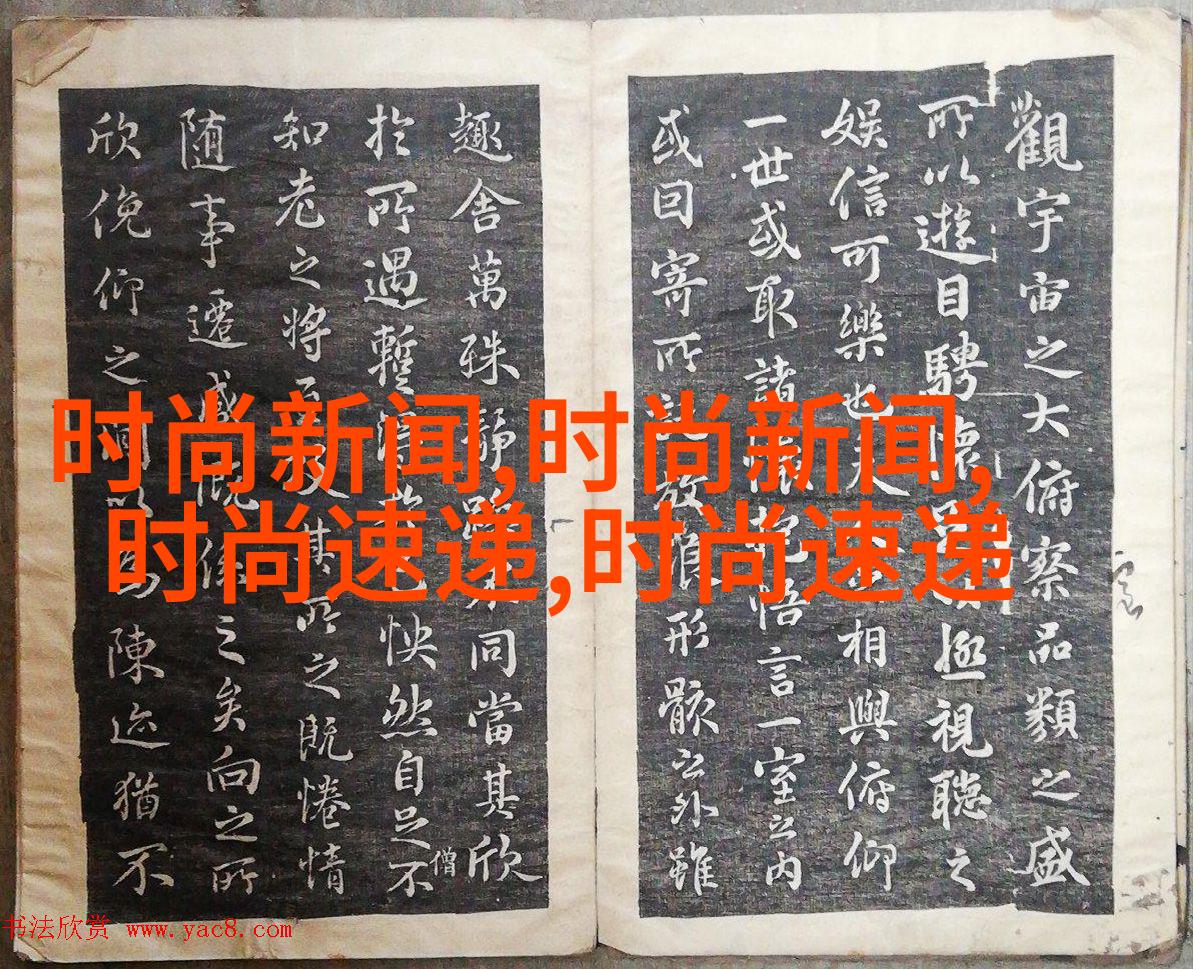 觀宇宙之大俯察品類之盛
所以遊目騁懷足以極視聽之
娛信可樂也夫人之相與俯仰
一世或取諸懷抱悟言一室之內
或因寄所託放浪形骸之外雖
趣舍萬殊靜躁不同當其欣
於所遇暫得於己怏然自足不
僧
知老之將至及其所之既惓情
隨事遷感慨係之矣向之所
欣俛仰之間以為陳迹猶不
时尚新闻,时尚新闻,
时尚速递,时尚速递
书法欣赏 www.yac8.com